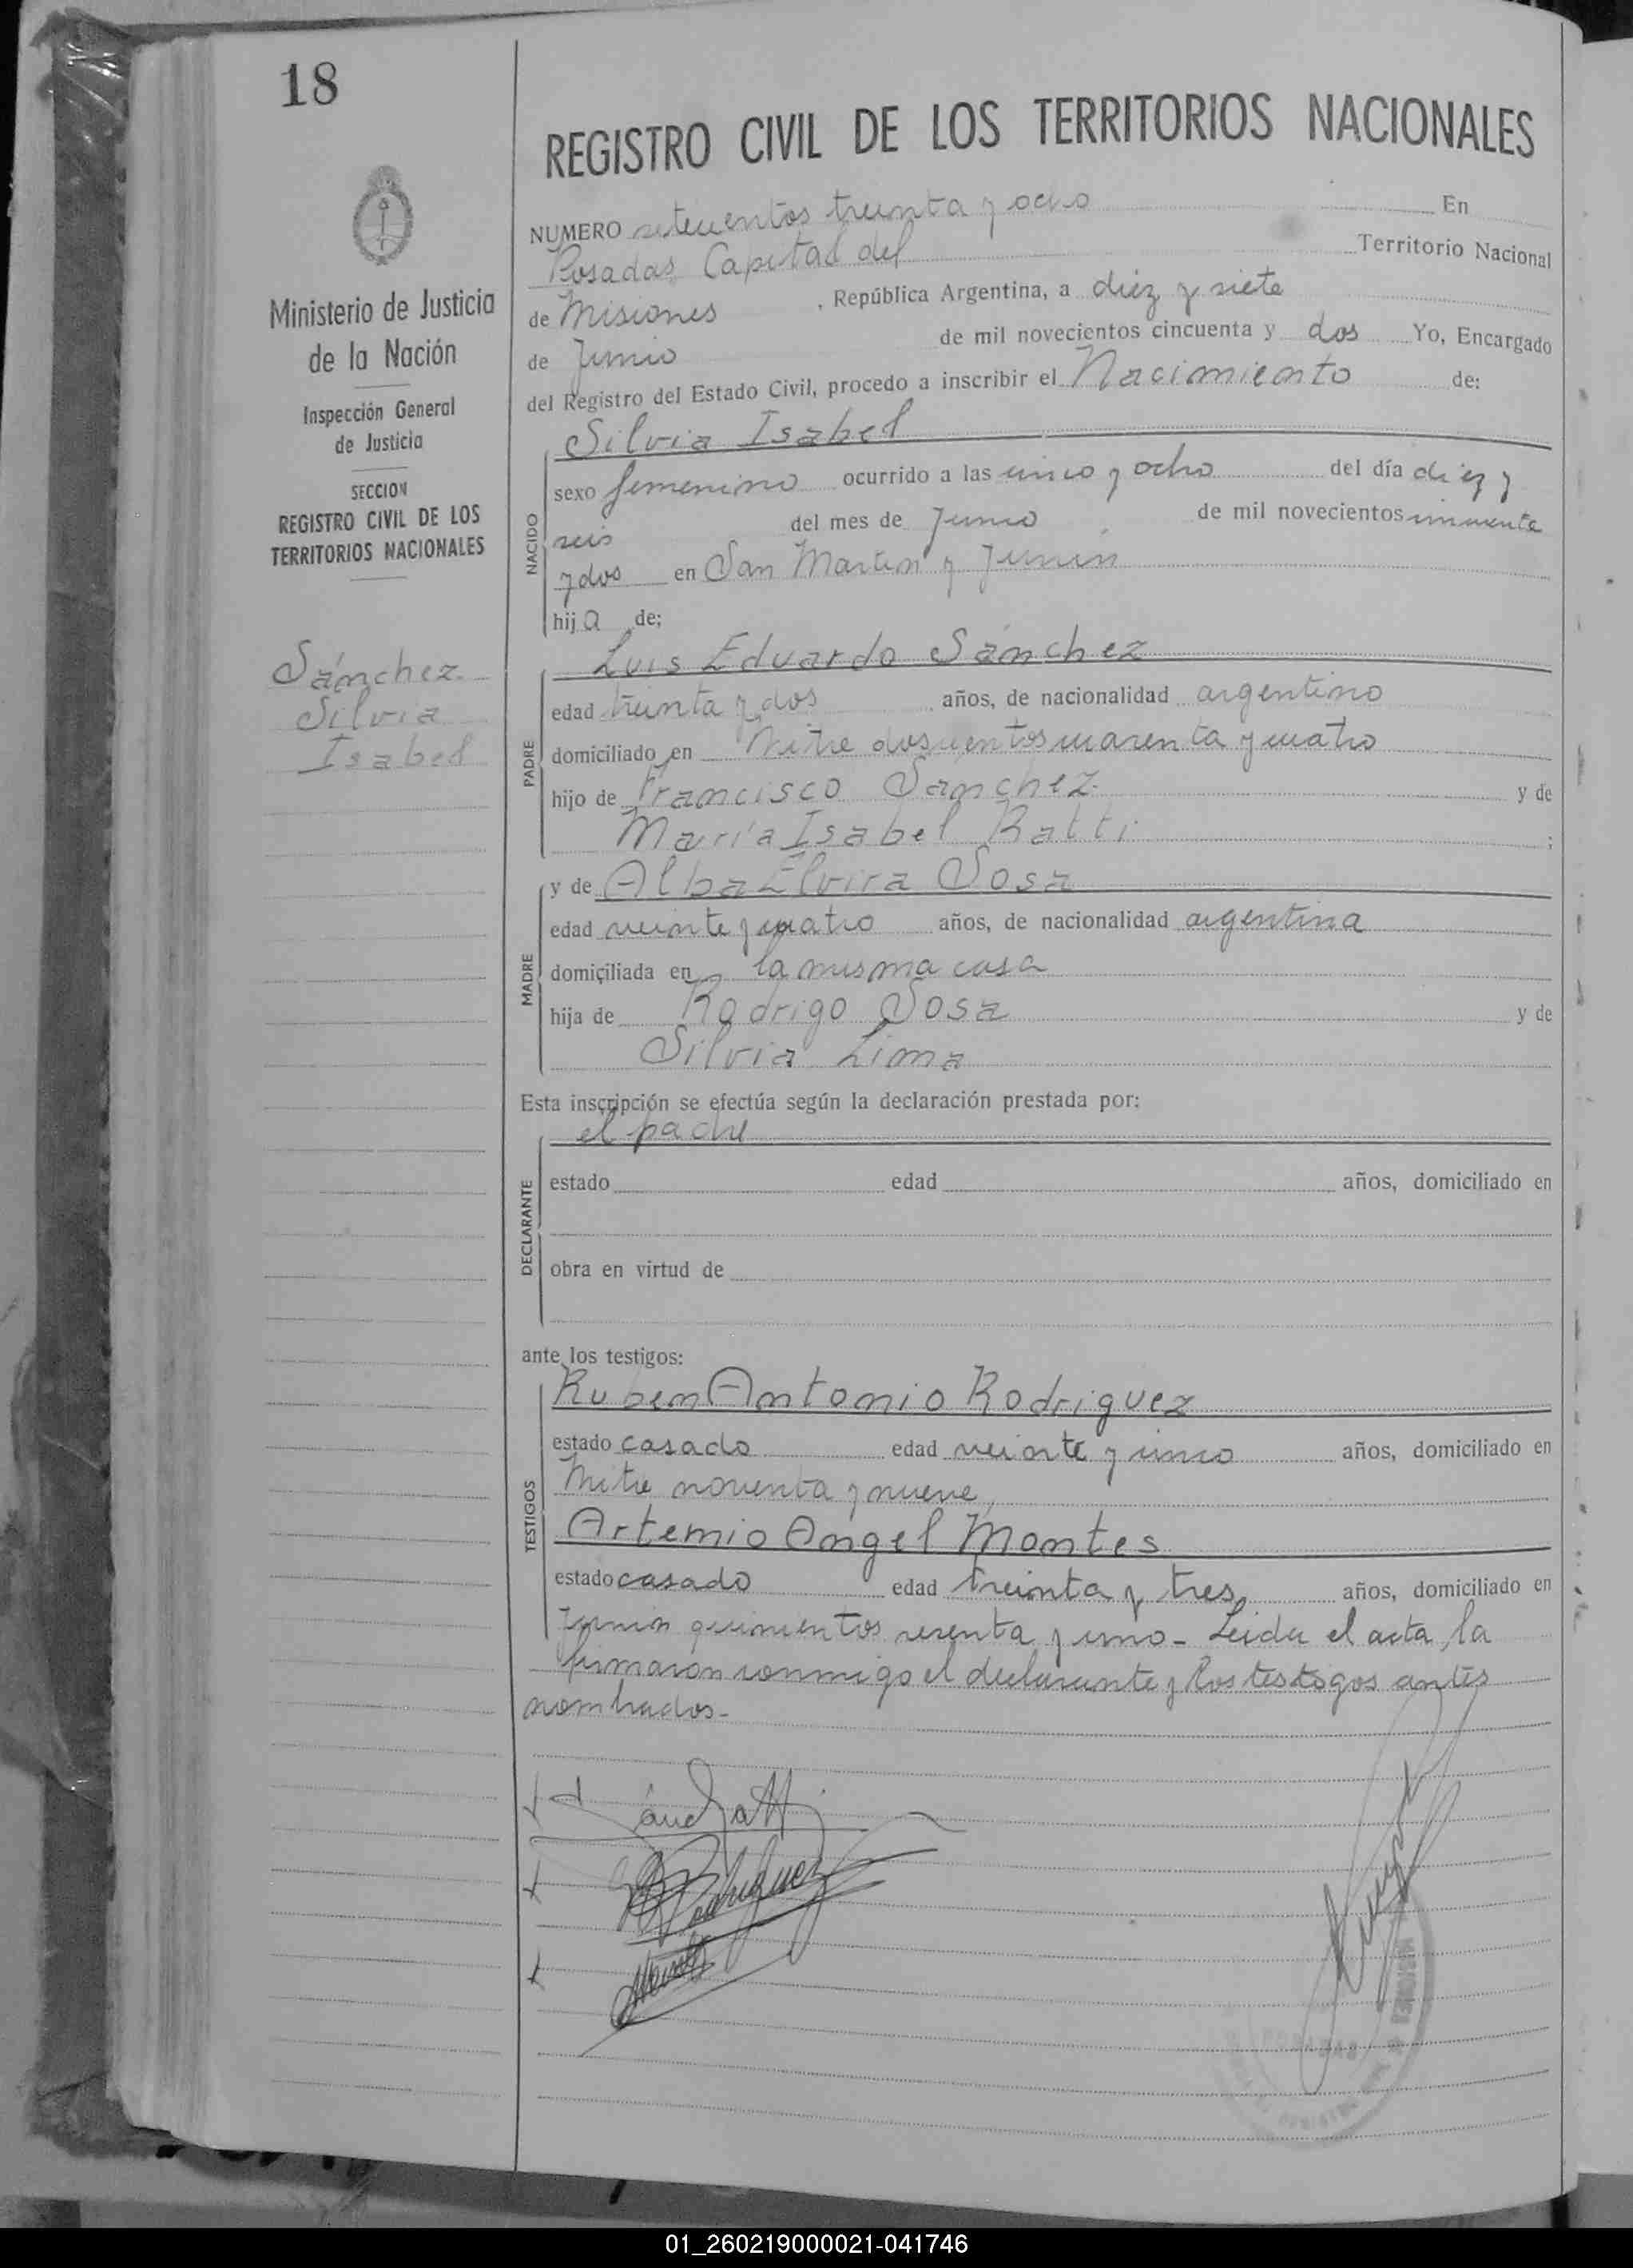 18
Ministerio de Justicia
de la Nación
Inspección General
de Justicia
SECCION
REGISTRO CIVIL DE LOS
TERRITORIOS NACIONALES
Sánchez
Silvia
Isabel
REGISTRO CIVIL DE LOS TERRITORIOS NACIONALES
NUMERO setecientos treinta y ocho En
Posadas Capital del Territorio Nacional
de Misiones, República Argentina, a diez y siete
de Junio de mil novecientos cincuenta y dos Yo, Encargado
del Registro del Estado Civil, procedo a inscribir el Nacimiento de:
NACIDO
Silvia Isabel
sexo femenino ocurrido a las cinco y ocho del día diez y
seis del mes de Junio de mil novecientos cincuenta
y dos en San Martin y Junin
hija de;
PADRE
Luis Eduardo Sánchez
edad treinta y dos años, de nacionalidad argentino
domiciliado en Mitre doscientos cuarenta y cuatro
hijo de Francisco Sánchez y de
María Isabel Ratti ;
MADRE
y de Alba Elvira Sosa
edad veinte y cuatro años, de nacionalidad argentina
domiciliada en la misma casa
hija de Rodrigo Sosa y de
Silvia Lima
Esta inscripción se efectúa según la declaración prestada por:
DECLARANTE
el padre
estado edad años, domiciliado en
obra en virtud de
ante los testigos:
TESTIGOS
Ruben Antonio Rodriguez
estado casado edad veinte y cinco años, domiciliado en
Mitre noventa y nueve,
Artemio Angel Montes
estado casado edad treinta y tres años, domiciliado en
Junin quinientos sesenta y uno - Leida el acta, la
firmaron conmigo el declarante y los testogos antes
nombrados -
Rodriguez
MISIONES
POSADAS
01_260219000021-041746